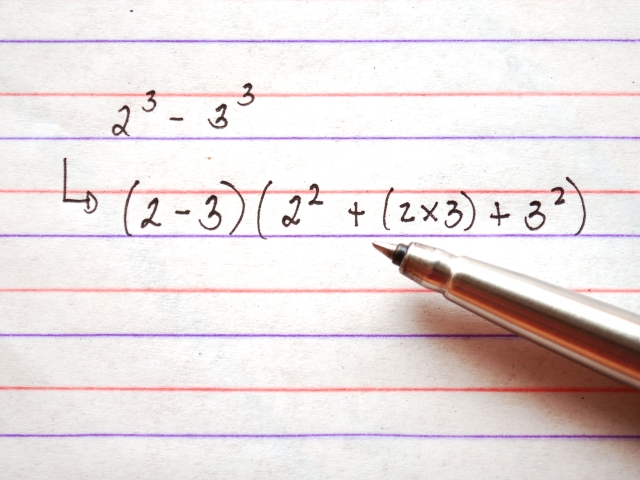 2³ - 3³
↳ (2 - 3)(2² + (2×3) + 3²)